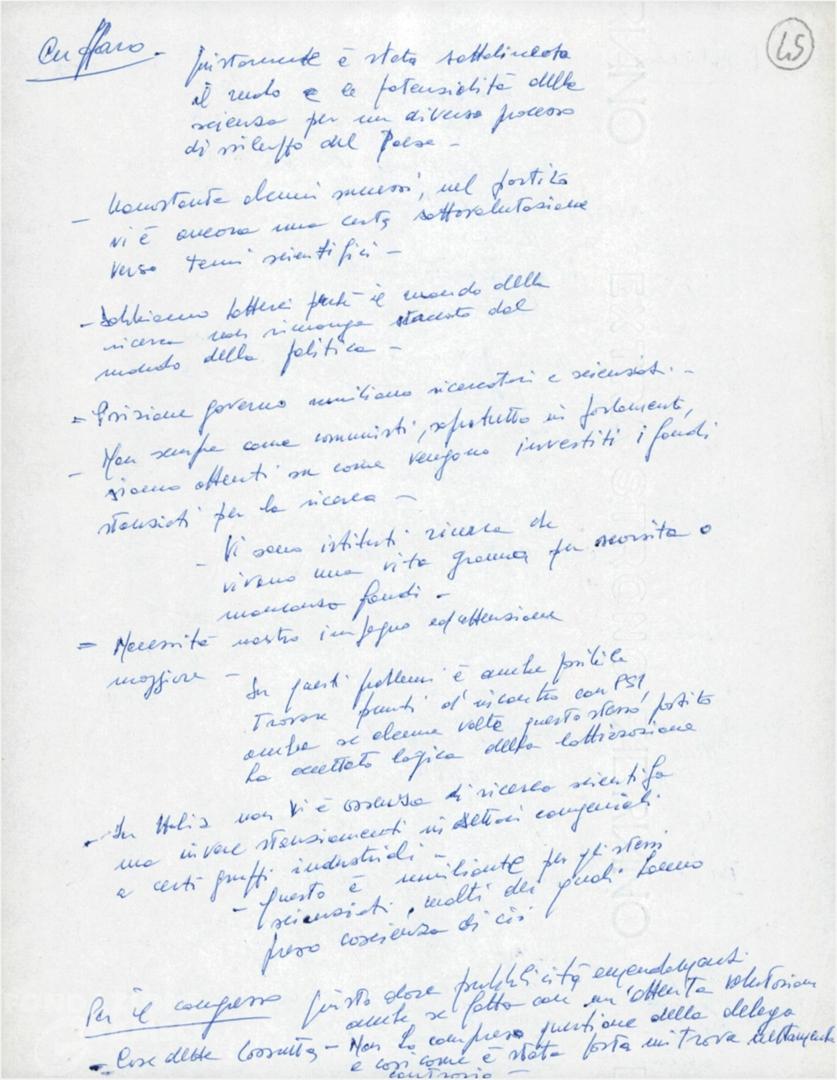 Cuffaro -
45
Giustamente è stata sottolineata
il ruolo e le potenzialità della
scienza per un diverso processo
di sviluppo del Paese -
- Nonostante alcuni successi, nel partito
vi è ancora una certa sottovalutazione
verso temi scientifici -
- Dobbiamo batterci perché il mondo della
ricerca non rimanga staccato dal
mondo della politica -
= Posizione governo umiliano ricercatori e scienziati -
- Non sempre come comunisti, soprattutto in parlamento,
siamo attenti su come vengono investiti i fondi
stanziati per la ricerca -
- Vi sono istituti ricerca che
vivono una vita grama per scarsità o
mancanza fondi -
= Necessità nostro impegno ed attenzione
maggiore -
Su questi problemi è anche possibile
trovare punti d'incontro con PSI
anche se alcune volte questo stesso partito
ha accettato logica della lottizzazione
- In Italia non vi è assenza di ricerca scientifica
ma invece stanziamenti in settori congeniali
a certi gruppi industriali -
- Questo è umiliante per gli stessi
scienziati, molti dei quali hanno
preso coscienza di ciò
Per il congresso giusto dare pubblicità emendamenti
anche se fatta con un'attenta valutazione
- Cose dette Cossutta - Non ho compreso questione della delega
e così come è stata posta mi trova nettamente
contrario -